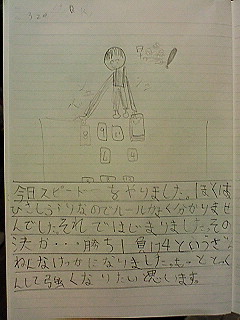 今日スピードをやりました。ぼくは
ひさしぶりなのでルールがよく分かりませ
んでした。それではじまりました。その
決か・・・勝ち1負け4というざ
ねんなけっかになりました。もっと
んして強くなりたい思います。